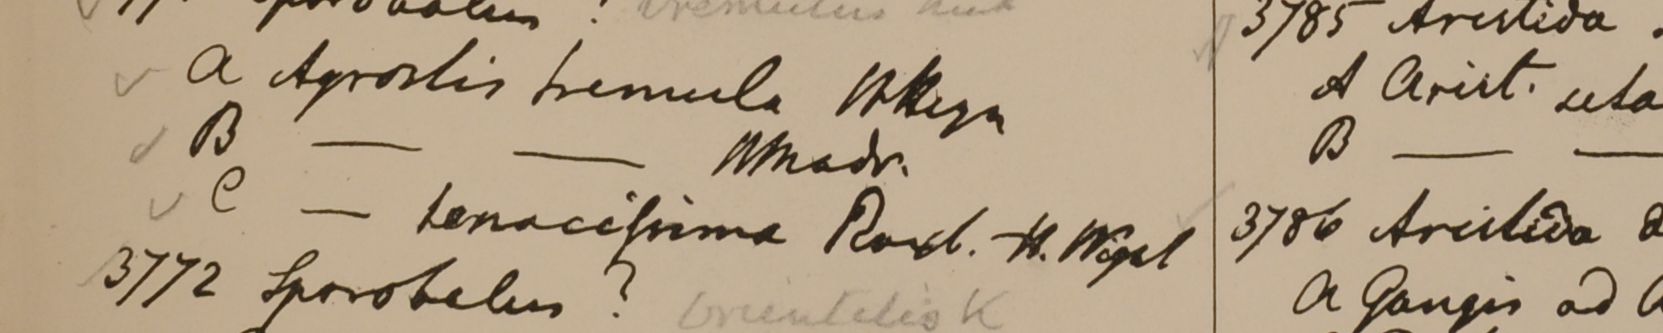 Sporobolus ? tremulus
a Agrostis tremula HHeyn
B — — HMadr.
C — tenacissima Roxb. H. Wight
3772 Sporobolus ? orientalis K
3785 Aristida
A Arist. seta
B — —
3786 Aristida
a Gangis ad